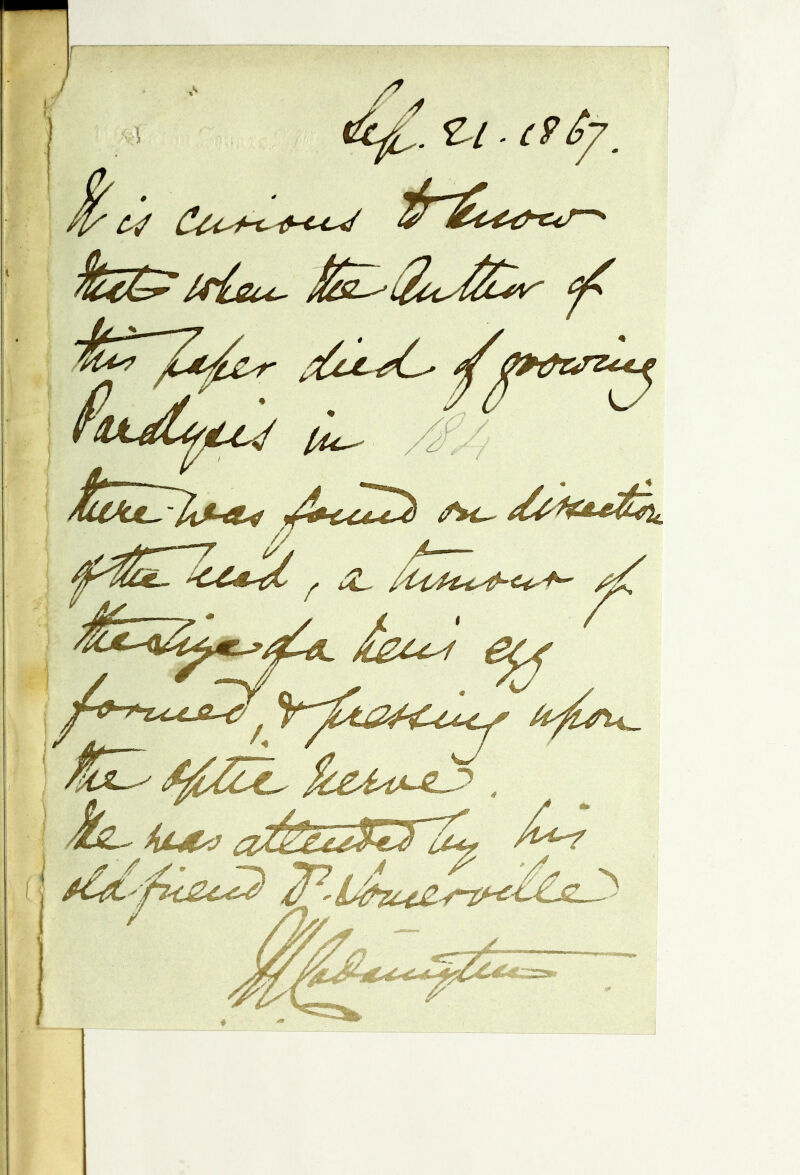 Sep. 21. 1867.
It is curious to know
that when the Author of
this paper died of growing
Paralysis in 184
there was found on dissection
of the head, a tumour of
the size of a hen's egg
formed, & pressing upon
the optic nerve.
He was attended by his
old friend Dr. Somerville